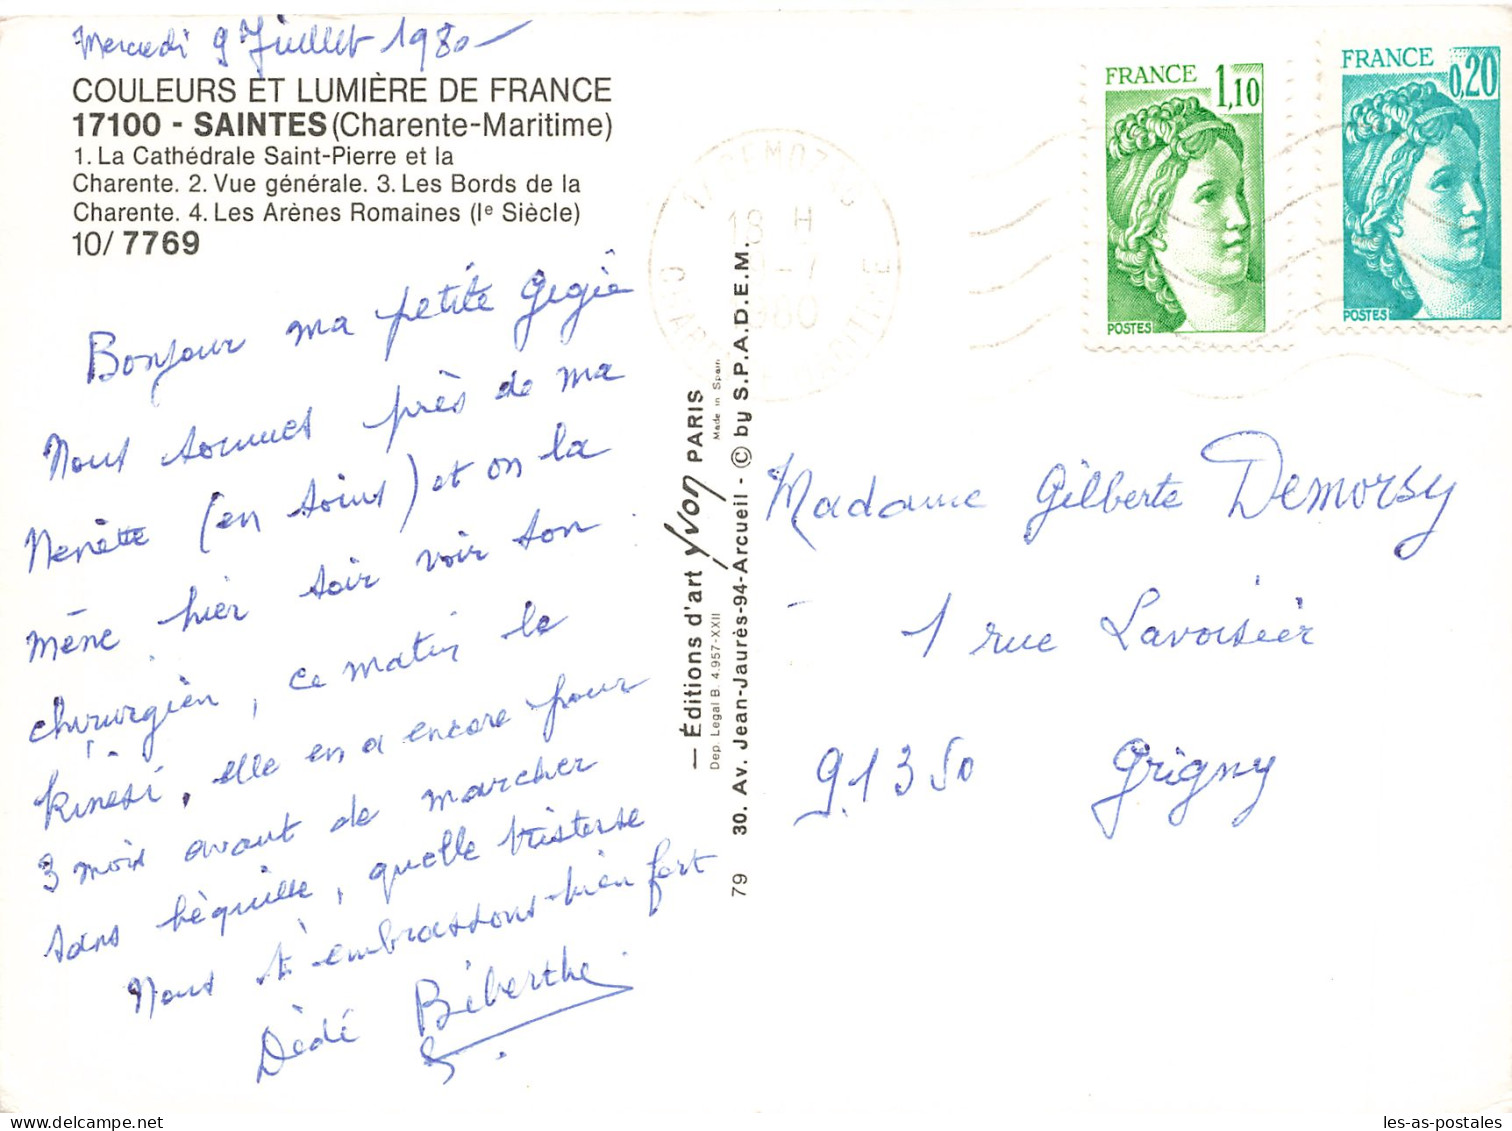 Mercredi 9 Juillet 1980
COULEURS ET LUMIÈRE DE FRANCE
17100 - SAINTES (Charente-Maritime)
1. La Cathédrale Saint-Pierre et la
Charente. 2. Vue générale. 3. Les Bords de la
Charente. 4. Les Arènes Romaines (Ie Siècle)
10/ 7769
Bonjour ma petite Gegie
Nous sommes près de ma
Nenette (en soins) et on la
mène hier soir voir son
chirurgien, ce matin le
kinési, elle en a encore pour
3 mois avant de marcher
sans béquille, quelle tristesse
Nous t'embrassons bien fort
Dédé Béberthe
— Éditions d'art Yvon PARIS
Made in Spain
Dep. Legal B. 4.957-XXII
30. Av. Jean-Jaurès-94-Arcueil - © by S.P.A.D.E.M.
79
18 H
-7
1980
FRANCE 1,10
POSTES
FRANCE 0,20
POSTES
Madame Gilberte Demorsy
1 rue Lavoisier
91350 Grigny
les-as-postales